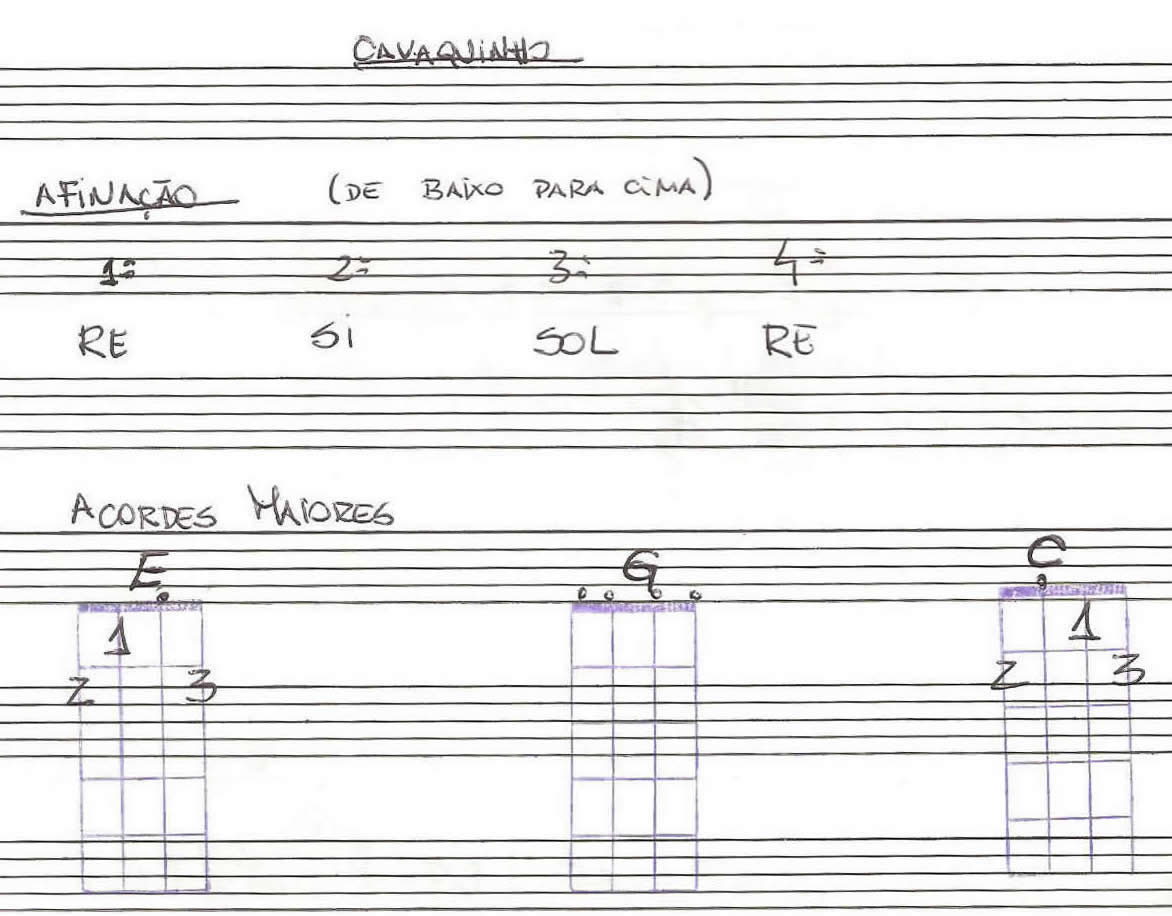 CAVAQUINHO
AFINAÇÃO (DE BAIXO PARA CIMA)
1ª 2ª 3ª 4ª
RE SI SOL RE
ACORDES MAIORES
E G C
1 1
2 3 2 3